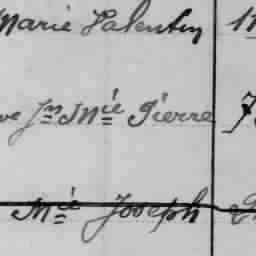 Marie Valentin
ve Jn Mie Pierre
Mie Joseph